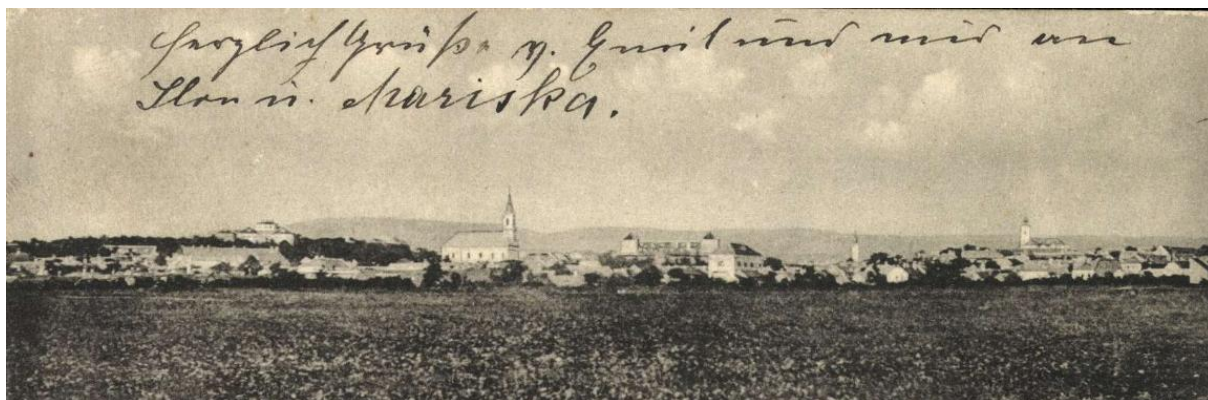 Herzlich Grüße v. Emil und mir an
Ilon u. Mariska.